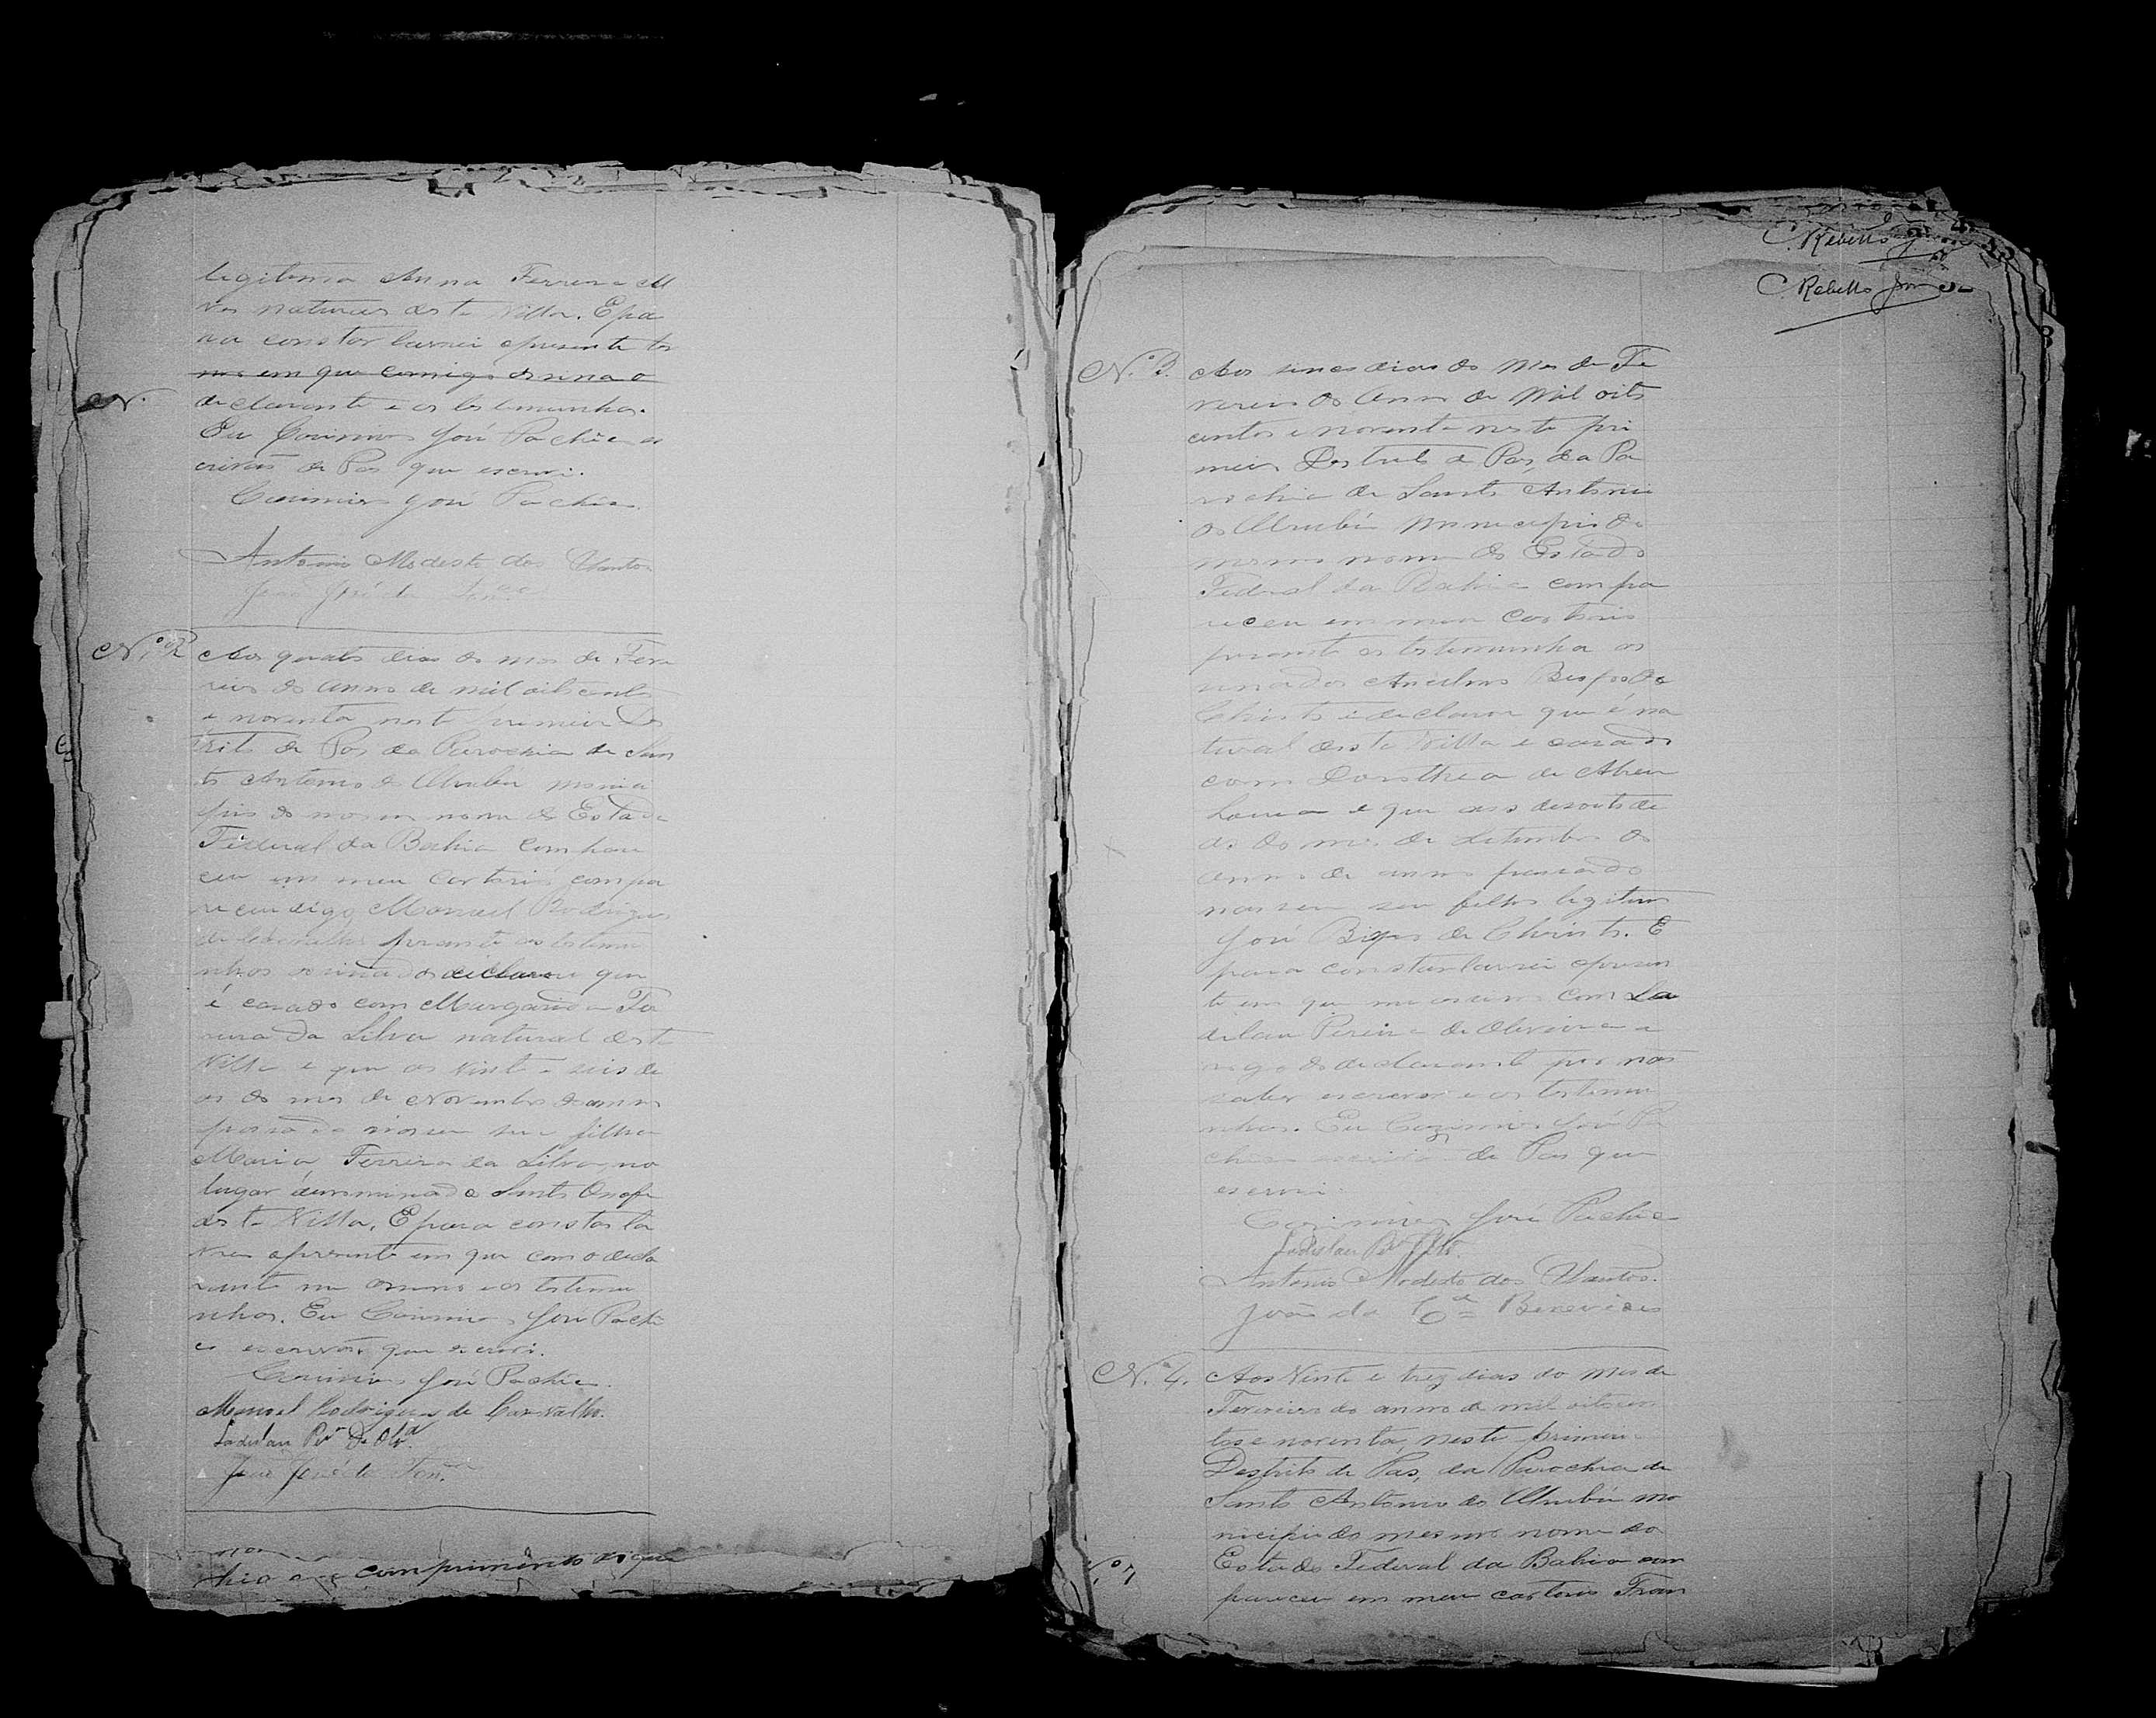 legitima Anna Ferreira
naturaes desta Villa. E pa
ra constar lavrei o presente ter
mo em que comigo assina o
N.
declarante e as testemunhas.
Eu Casimiro José Pacheco es
crivão de Paz que escrevi.
Casimiro José Pacheco
Antonio Modesto dos Santos
João José da
N.º 2 Aos quatro dias do mes de Feve
reiro do anno de mil oitocentos
e noventa neste primeiro Des
trito de Paz da Parochia de San
to Antonio do Urubu monici
pio do mesmo nome do Estado
Federal da Bahia compare
ceu em meu Cartorio compa
receu digo Manoel Rodrigues
de Carvalho perante as testemu
nhas assinadas declarou que
é casado com Margarida Fe
reira da Silva natural desta
Villa e que aos vinte e seis di
as do mes de Novembro do anno
passado nasceu sua filha
Maria Ferreira da Silva, no
lugar denominado Santo Onofre
desta Villa. E para constar la
vrei o presente em que com o decla
rante me assino e as testemu
nhas. Eu Casimiro José Pache
co escrivão que escrevi.
Casimiro José Pacheco.
Manoel Rodrigues de Carvalho.
Ladislau Per.ª De Olv.ª
João José da
comprimento do que
C. Rebello
C. Rebello Junior
N.º 3. Aos sinco dias do mes de Fe
vereiro do Anno de Mil oito
centos e noventa neste pri
meiro Destrito de Paz, da Pa
rochia de Santo Antonio
do Urubú Monicipio do
mesmo nome do Estado
Federal da Bahia compa
receu em meu Cartorio
perante as testemunhas as
sinadas Anselmo Bispo de
Christo e declarou que é na
tural desta Villa e casado
com Dorothea de Abreu
e que aos desoito di
as do mes de Setembro do
anno passado
nasceu seu filho legitimo
José Bispo de Christo. E
para constar lavrei o presen
te em que me assino com La
dislau Pereira de Oliveira a
rogo do declarante por não
saber escrever e as testemu
nhas. Eu Casimiro José Pa
checo escrivão de Paz que
escrevi.
Casimiro José Pacheco
Ladislau Per.ª Olv.ª
Antonio Modesto dos Santos.
João da C.ª Benevides
N.º 4. Aos Vinte e trez dias do mes de
Fevereiro do anno de mil oitocen
tos e noventa, neste primeiro
Destrito de Pas, da Parochia de
Santo Antonio do Urubú mo
nicipio do mesmo nome do
Estado Federal da Bahia com
N.º 7
pareceu em meu cartorio Fran